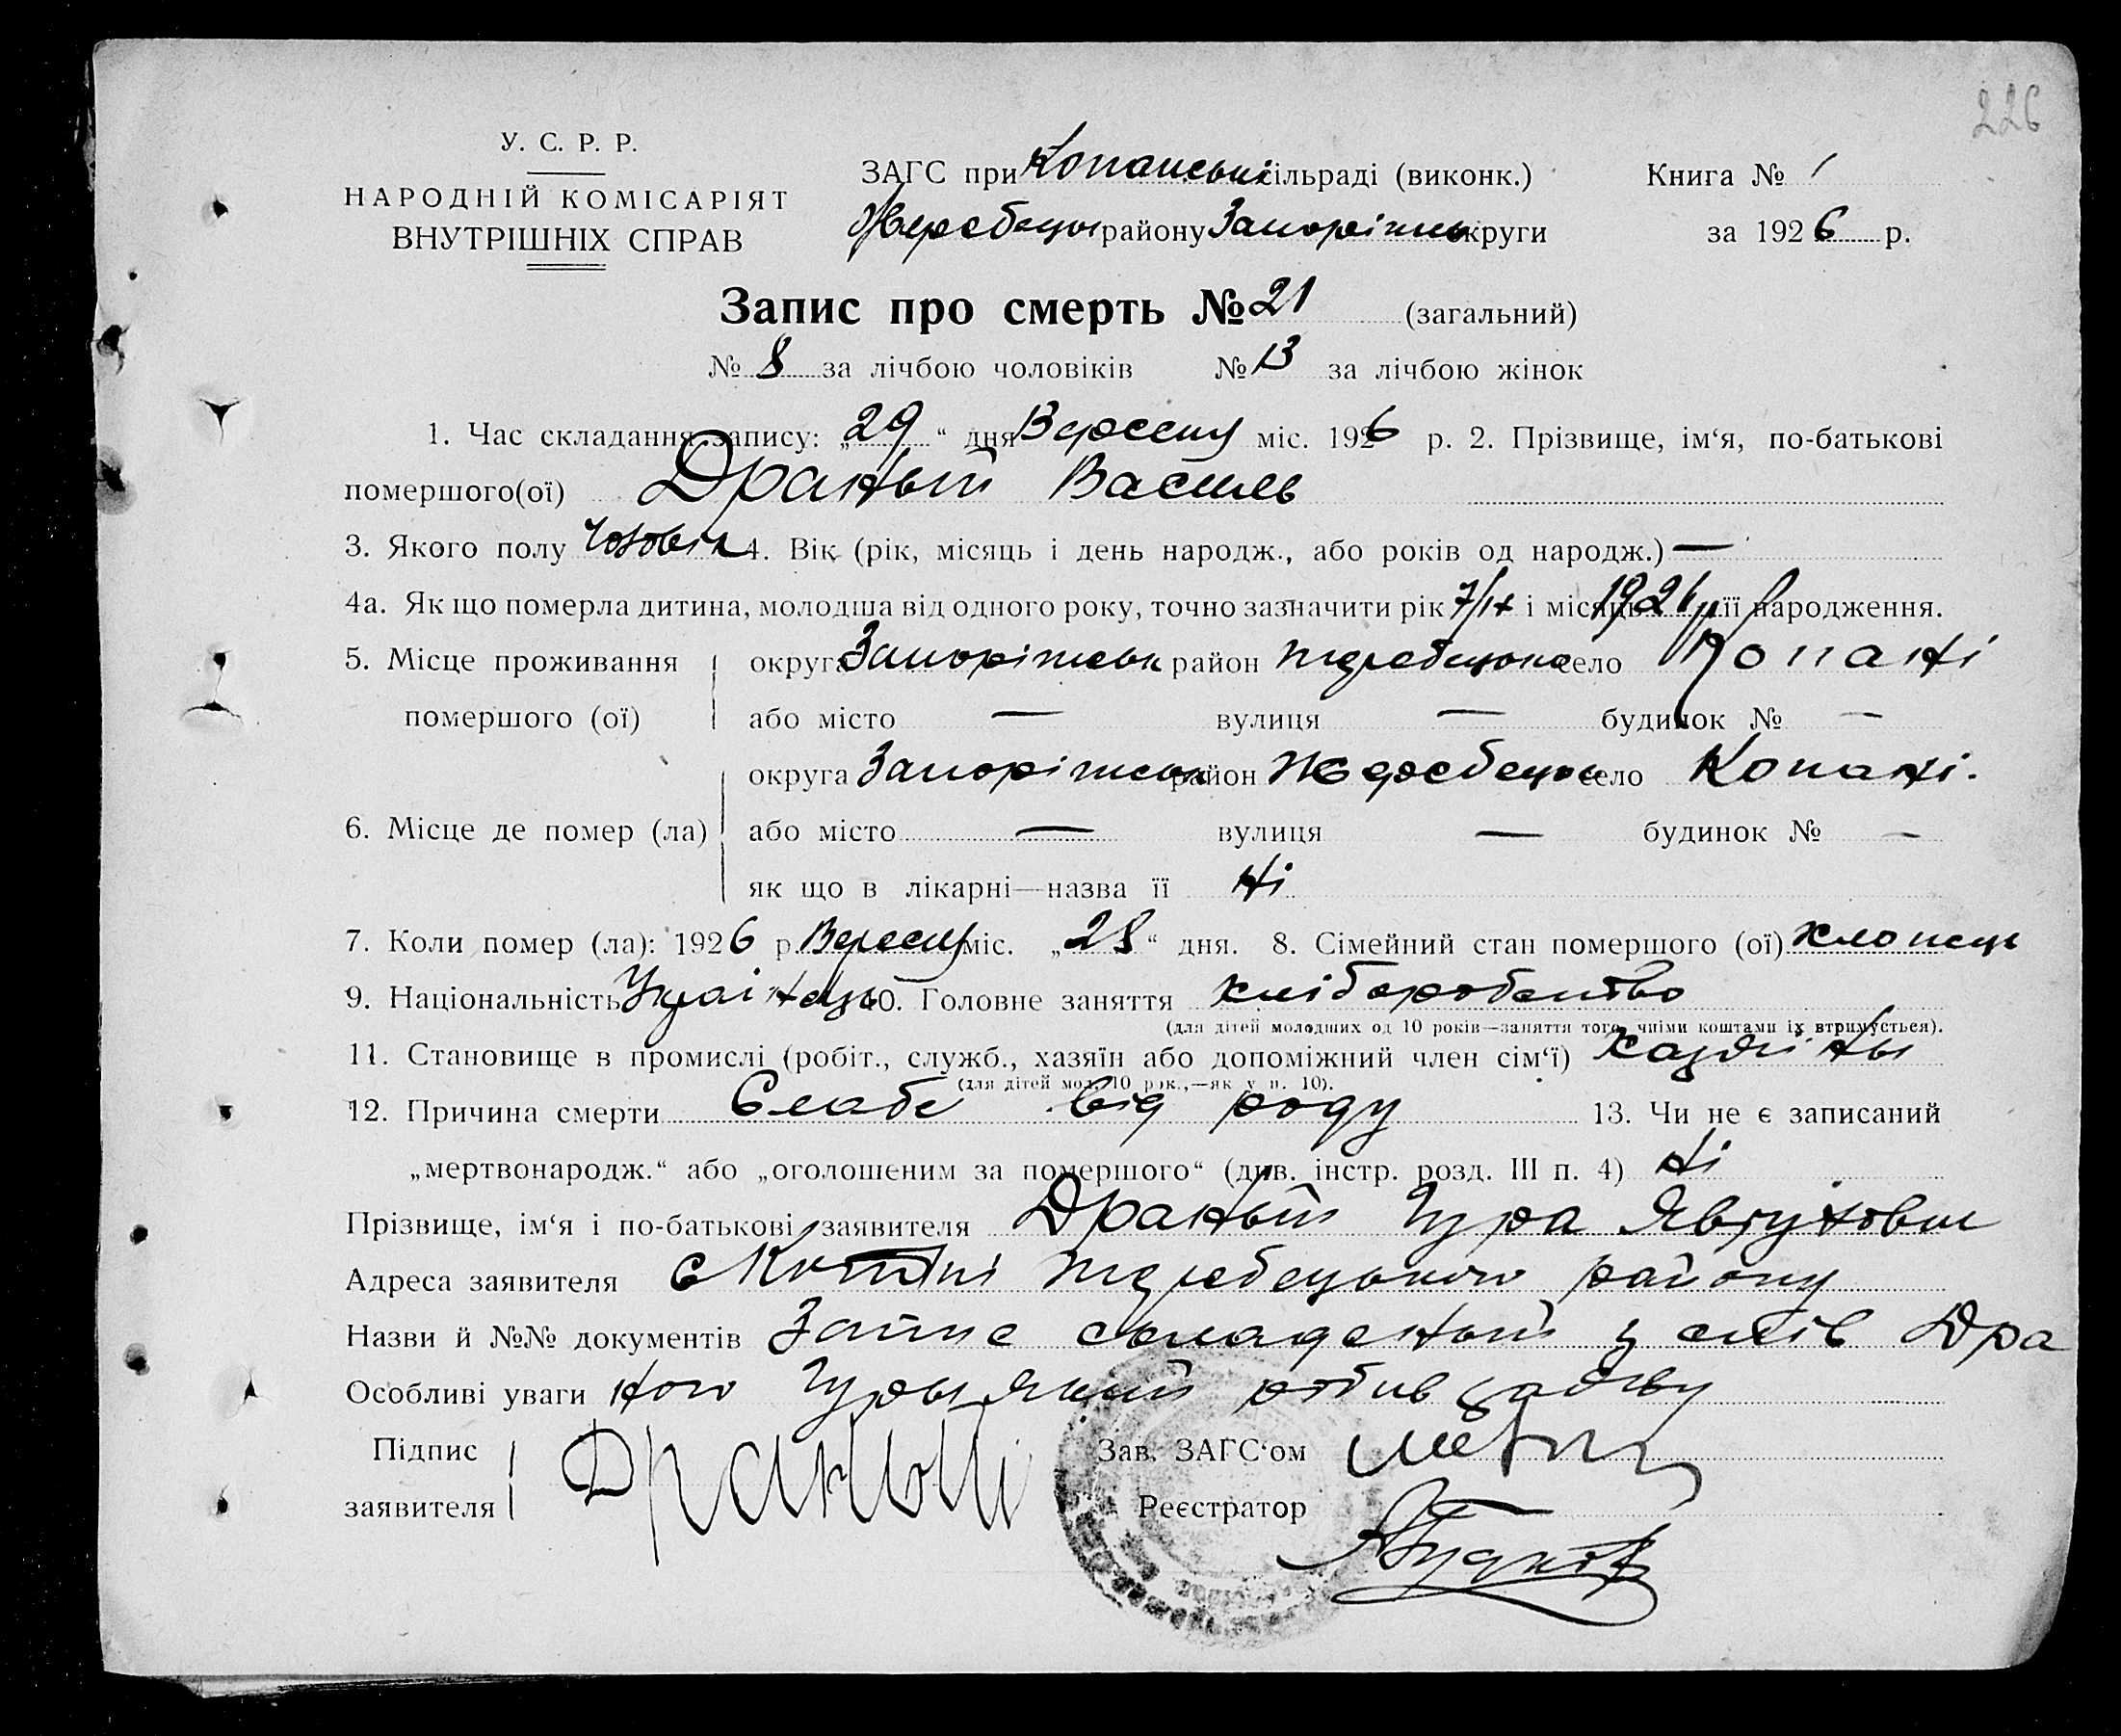 226
У. С. Р. Р.
НАРОДНІЙ КОМІСАРІЯТ
ВНУТРІШНІХ СПРАВ
ЗАГС при Копанській сільраді (виконк.) Книга № 1
Жеребецьк району Запоріжськ округи за 1926 р.
Запис про смерть № 21 (загальний)
№ 8 за лічбою чоловіків № 13 за лічбою жінок
1. Час складання запису: „29“ дня Вересня міс. 1926 р. 2. Прізвище, ім‘я, по-батькові
помершого(ої) Драный Василь
3. Якого полу Чоловік 4. Вік (рік, місяць і день народж., або років од народж.) —
4а. Як що померла дитина, молодша від одного року, точно зазначити рік 7/ІХ і місяць 1926 р її народження.
5. Місце проживання помершого (ої) округа Запоріжськ район Жеребецьке село Копані
або місто — вулиця — будинок № —
6. Місце де помер (ла) округа Запоріжськ район Жеребецьк село Копані.
або місто — вулиця — будинок № —
як що в лікарні—назва її Ні
7. Коли помер (ла): 1926 р. Вересня міс. „28“ дня. 8. Сімейний стан помершого (ої) хлопець
9. Національність Українець 10. Головне заняття хліборобство
(для дітей молодших од 10 років—заняття того, чиїми коштами їх втримується).
11. Становище в промислі (робіт., служб., хазяїн або допоміжний член сім‘ї) хазяїны
(для дітей мол. 10 рок.,—як у п. 10).
12. Причина смерти Слабе від роду 13. Чи не є записаний
„мертвонародж.“ або „оголошеним за помершого“ (див. інстр. розд. III п. 4) Ні
Прізвище, ім‘я і по-батькові заявителя Драный Гура Явтухович
Адреса заявителя с Копані Жеребецького району
Назви й №№ документів Запис складеный з слів Дра
Особливі уваги ного Гуры який робив заяву
Підпис заявителя Драный
Зав. ЗАГС‘ом
Реєстратор